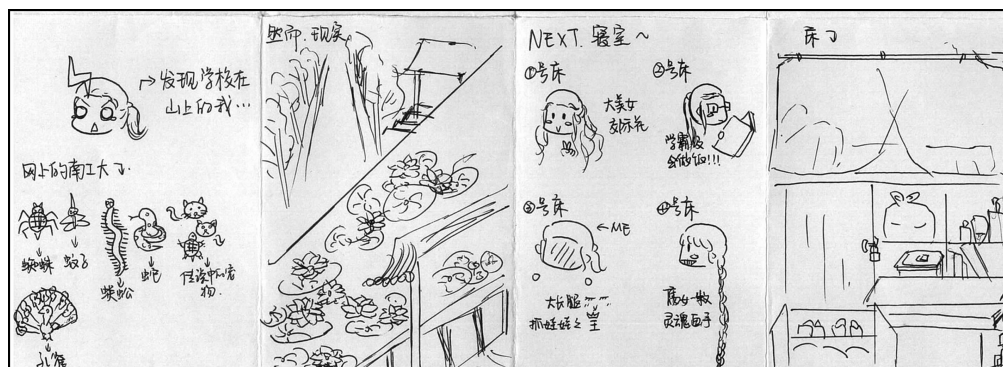 发现学校在
山上的我…
网上的南工大
蜘蛛
蚊子
蜈蚣
蛇
怪谈中的宠
物.
孔雀
然而.现实
NEXT. 寝室~
①号床
大美女
交际花
②号床
学霸级
会做饭!!!
③号床
←ME
大长腿
抓娃娃之
④号床
腐女一枚
灵魂画手
床了